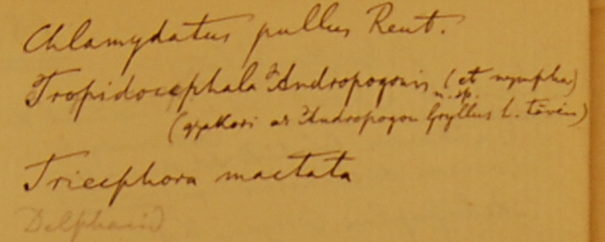 Chlamydatus pullus Reut.
Tropidocephala Andropogonis (et nympha)
n. sp.
(gyakori az Andropogon Gryllus L. tövén)
Triecphora mactata
Delphacid